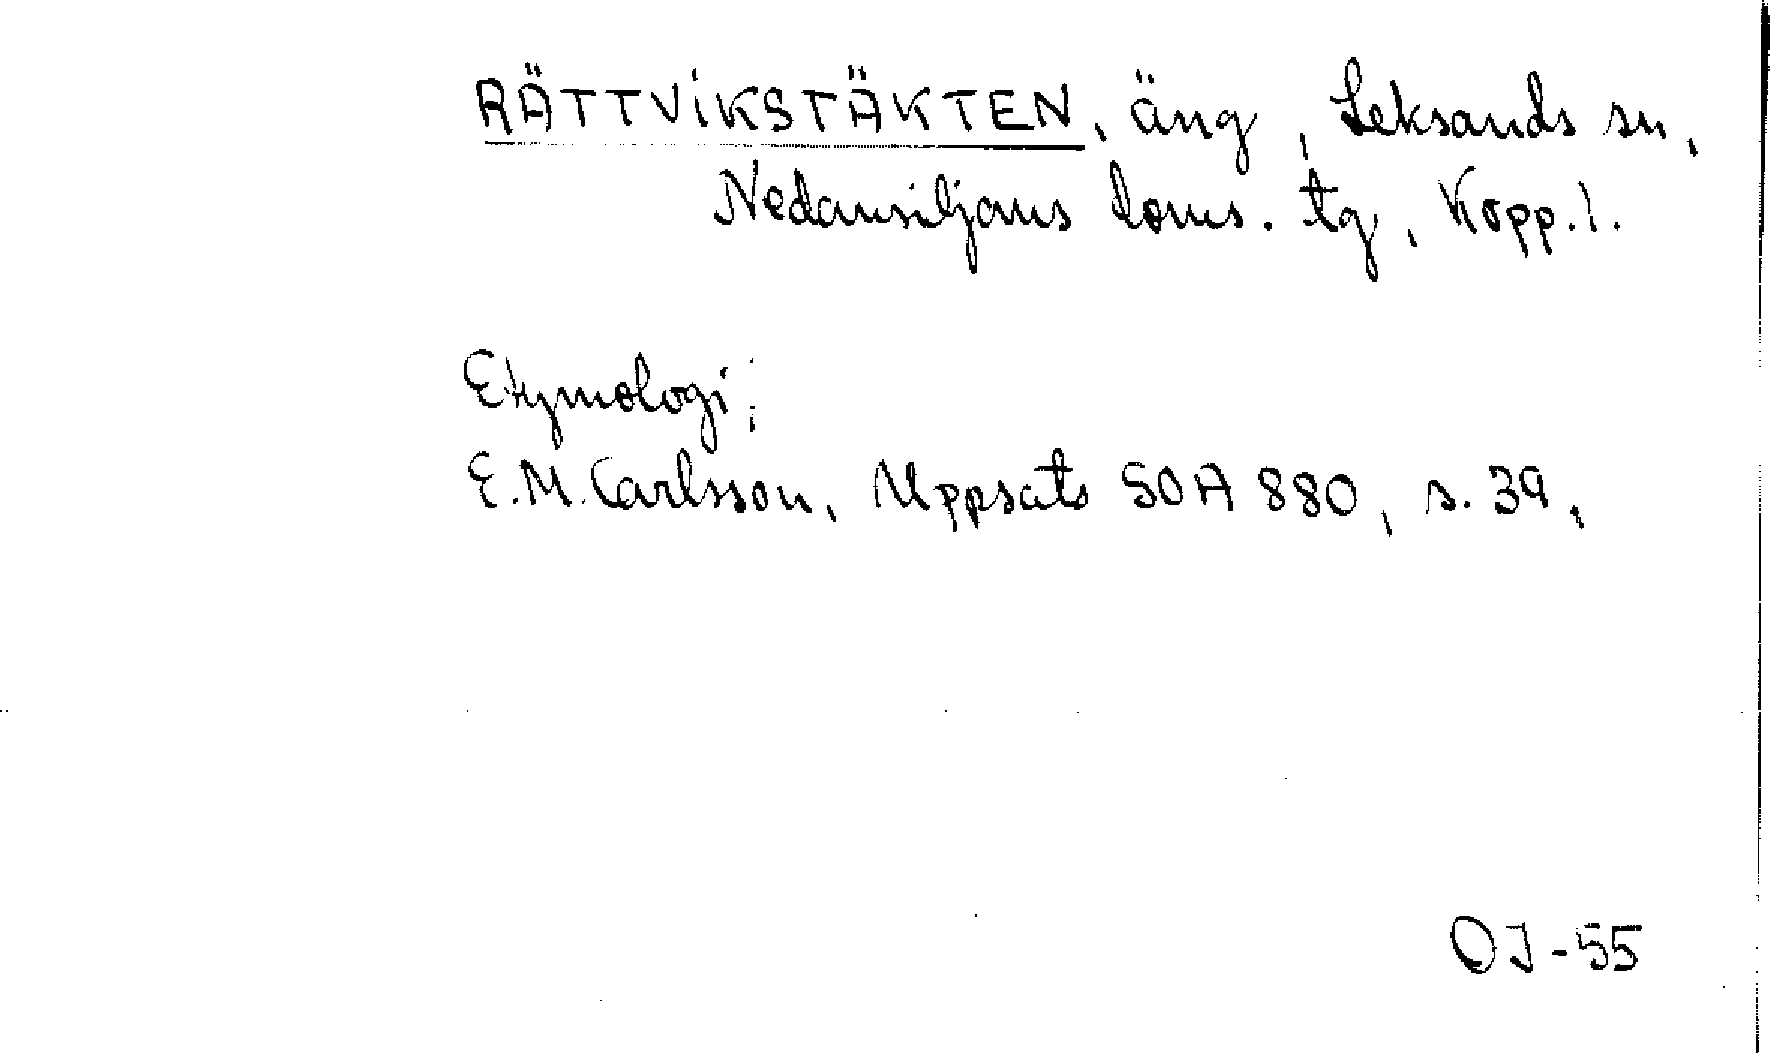 RÄTTVIKSTÄKTEN, äng, Leksands sn,
Nedansiljans doms. tg, Kopp. l.
Etymologi:
E.M. Carlsson, Uppsats SOA 880, s. 39,
OJ-55